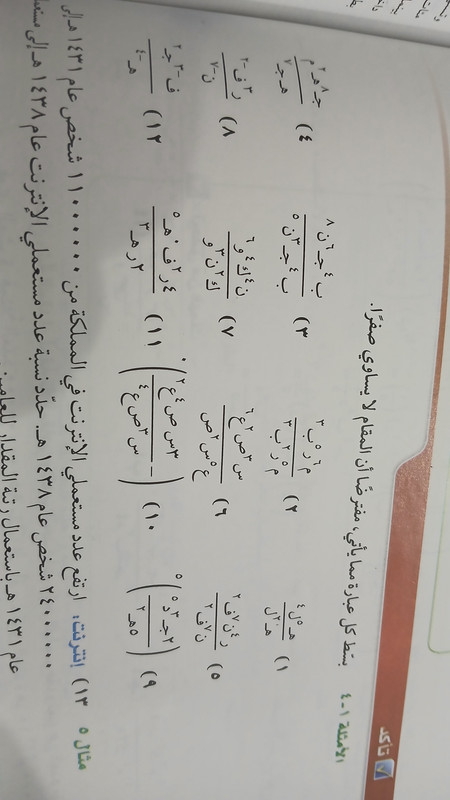 تأكد
الأمثلة ١-٤ بسّط كل عبارة مما يأتي، مفترضًا أن المقام لا يساوي صفرًا.
١) هـ⁠^٥ل^٤ / هـ^٢ل ٢) م^٦ر^٥ب^٣ / م^٥ر^٢ب^٣ ٣) ب^٤جـ^٦ن^٨ / ب^٤جـ^٣ن^٥ ٤) جـ^٨هـ^٢م / هـ جـ^٧
٥) ر^٤ن^٧ف^٢ / ن^٧ف^٢ ٦) س^٣ص^٢ع^٦ / ع^٥س^٢ص ٧) ن^٤ك^٤و^٦ / ك^٢ن^٣و ٨) ر^٣ف^-٢ / ن^-٧
٩) (٢جـ^٣د^٥ / ٥هـ^٢)^٥ ١٠) -(٣س ص^٤ع^٢ / س^٣ص ع^٤)^٠ ١١) ٤ر^٢ف^٠هـ^٥ / ٢ر هـ^٣ ١٢) ف^-٣جـ^٢ / هـ^-٤
مثال ٥ ١٣) إنترنت: ارتفع عدد مستعملي الإنترنت في المملكة من ١١٠٠٠٠٠٠ شخص عام ١٤٣١ هـ إلى
٢٤٠٠٠٠٠٠ شخص عام ١٤٣٨ هـ. حدّد نسبة عدد مستعملي الإنترنت عام ١٤٣٨ هـ إلى
عام ١٤٣١ هـ باستعمال رتبة المقدار للعامين.